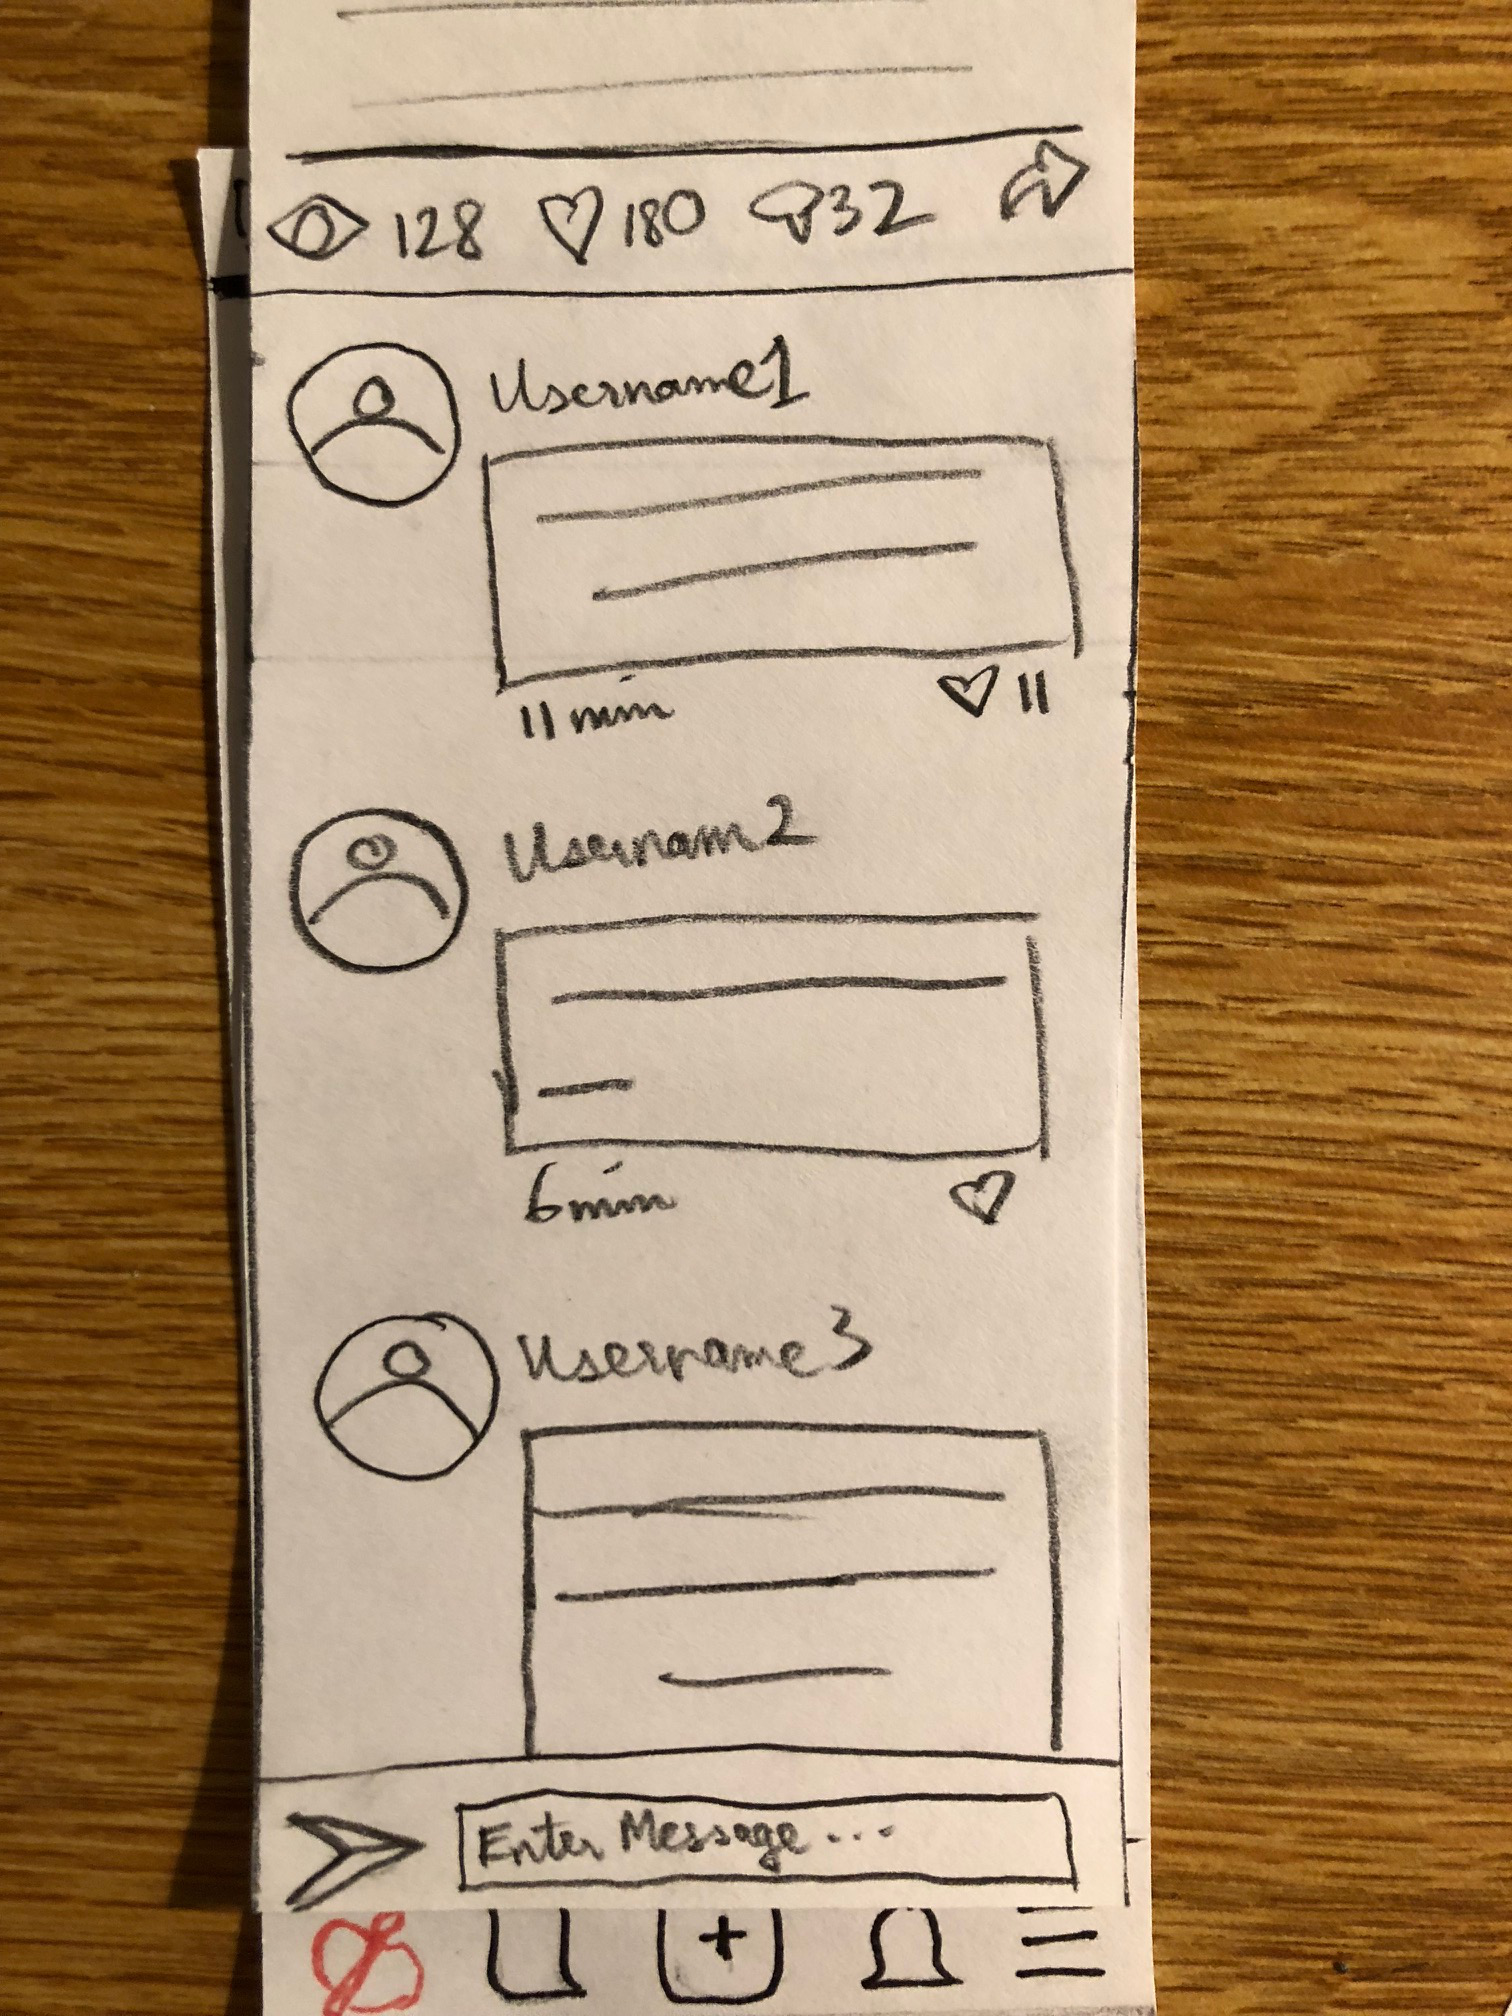 128 180 32
Username1
11 min
11
Usernam2
6 min
Username3
Enter Message ...